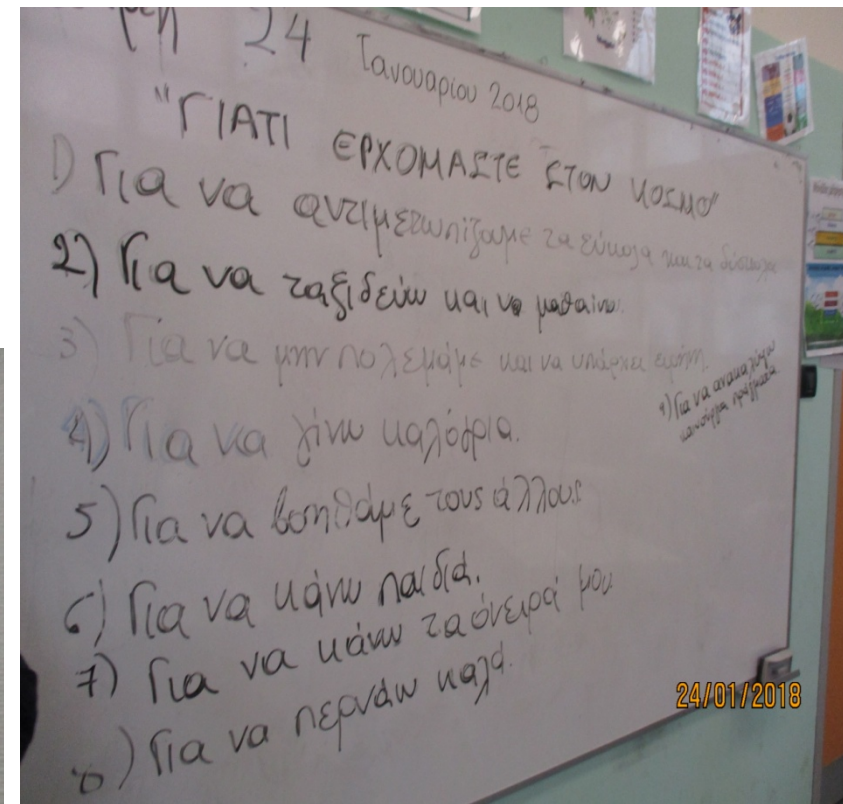 24 Ιανουαρίου 2018
"ΓΙΑΤΙ ΕΡΧΟΜΑΣΤΕ ΣΤΟΝ ΚΟΣΜΟ"
1) Για να αντιμετωπίζαμε τα εύκολα και τα δύσκολα
2) Για να ταξιδεύω και να μαθαίνω.
3) Για να μην πολεμάμε και να υπάρχει ειρήνη
4) Για να γίνω καλόγρια.
5) Για να βοηθάμε τους άλλους
6) Για να κάνω παιδιά.
7) Για να κάνω τα όνειρά μου
8) Για να περνάω καλά.
9) Για να ανακαλύψω
καινούργια πράγματα
24/01/2018